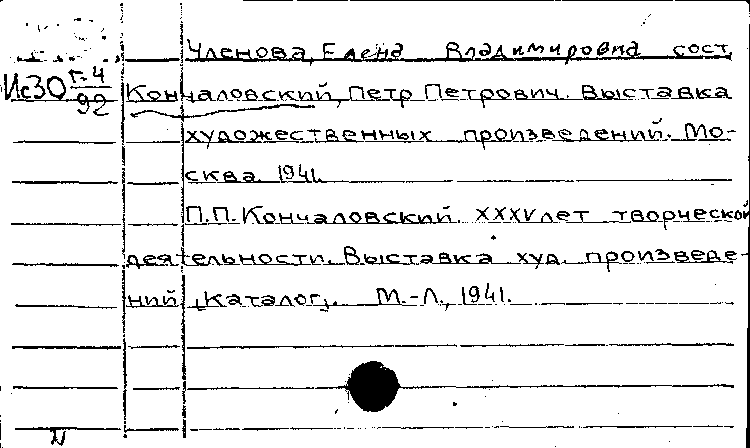 Членова, Елена Владимировна сост.
Ис30 г-4/92 Кончаловский, Петр Петрович. Выставка
художественных произведений. Мо-
сква. 1941.
П.П. Кончаловский. XXXV лет творческой
деятельности. Выставка худ. произведе-
ний [Каталог]. М.-Л., 1941.